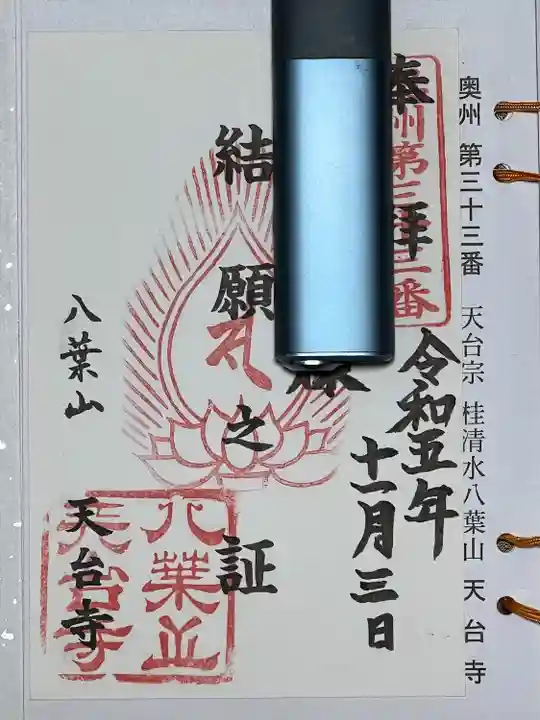 奥州 第三十三番 天台宗 桂清水八葉山 天台寺
奉拝
令和五年
十一月三日
結願之証
八葉山
天台寺
八葉山
天台寺